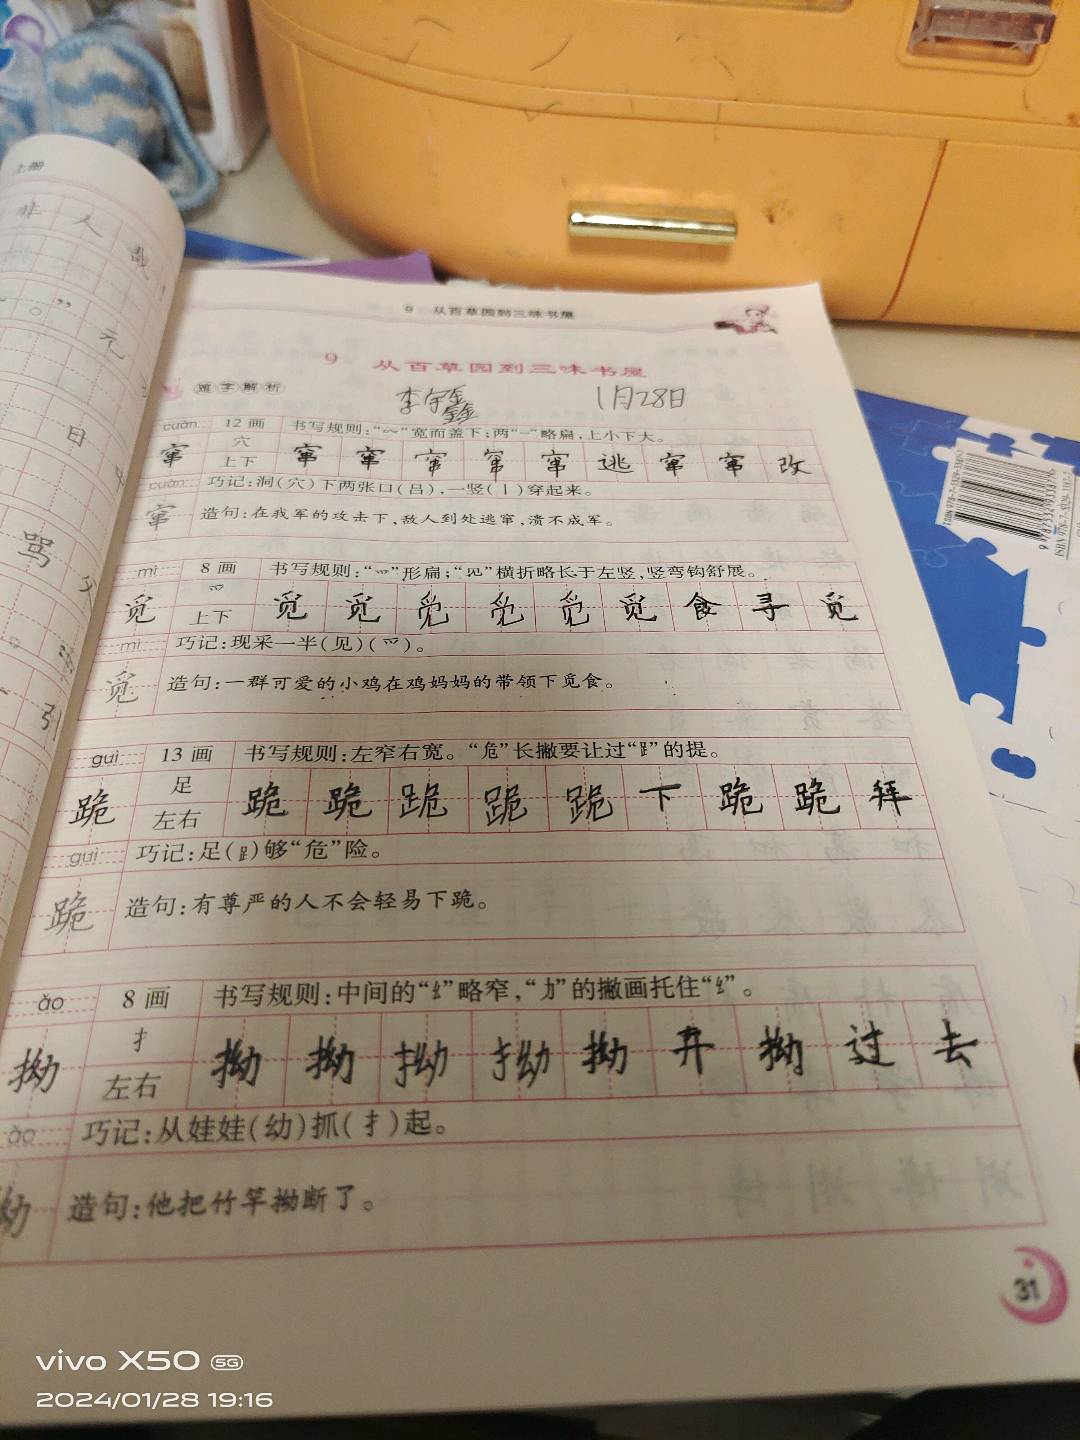 上册
非人哉
”元
日
骂父
引
9 从百草园到三味书屋
9 从百草园到三味书屋
难字解析
李宇鑫 1月28日
cuàn 12画 书写规则:“宀”宽而盖下;两“一”略扁,上小下大。
穴
窜 上下 窜 窜 窜 窜 窜 逃 窜 窜 改
cuàn 巧记:洞(穴)下两张口(吕),一竖(丨)穿起来。
窜 造句:在我军的攻击下,敌人到处逃窜,溃不成军。
mì 8画 书写规则:“爫”形扁;“见”横折略长于左竖,竖弯钩舒展。
爫
觅 上下 觅 觅 觅 觅 觅 觅 食 寻 觅
mì 巧记:现采一半(见)(爫)。
觅 造句:一群可爱的小鸡在鸡妈妈的带领下觅食。
guì 13画 书写规则:左窄右宽。“危”长撇要让过“⻊”的提。
足
跪 左右 跪 跪 跪 跪 跪 下 跪 跪 拜
guì 巧记:足(⻊)够“危”险。
跪 造句:有尊严的人不会轻易下跪。
ǎo 8画 书写规则:中间的“幺”略窄,“力”的撇画托住“幺”。
扌
拗 左右 拗 拗 拗 拗 拗 开 拗 过 去
ǎo 巧记:从娃娃(幼)抓(扌)起。
拗 造句:他把竹竿拗断了。
31
ISBN 978-7-5329-3107-2
vivo X50 5G
2024/01/28 19:16